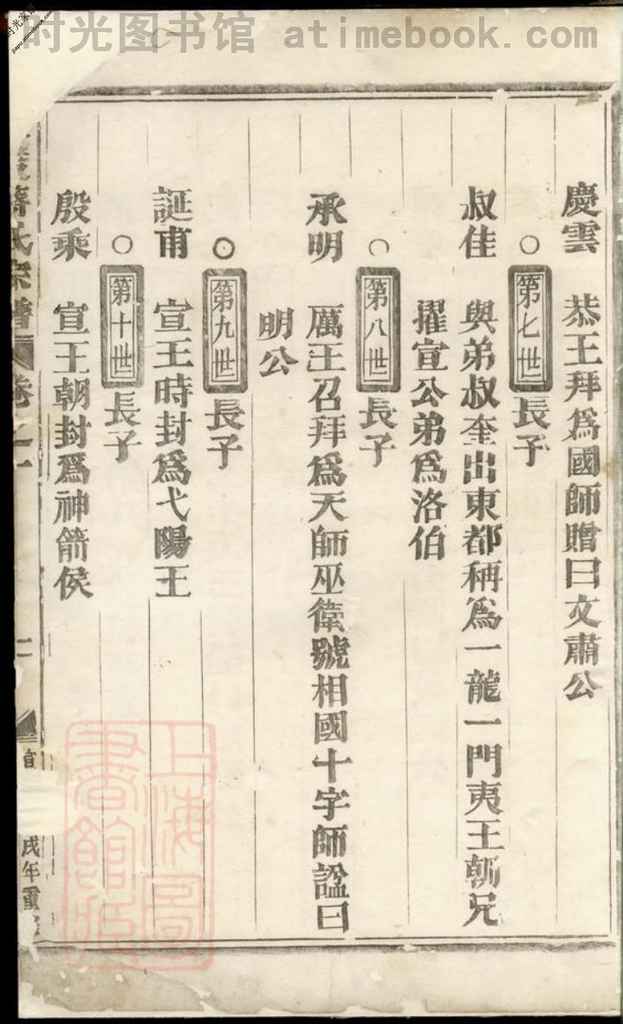 时光图书馆 atimebook.com
慶雲 恭王拜爲國師贈曰文肅公
○ 第七世 長子
叔佳 與弟叔奎出東都稱爲一龍一門夷王朝兄
擢宣公弟爲洛伯
○ 第八世 長子
承明 厲王召拜爲天師巫衛號相國十字師諡曰
明公
○ 第九世 長子
誕甫 宣王時封爲弋陽王
○ 第十世 長子
殷乘 宣王朝封爲神箭侯
氏宗譜 卷之一
戌年重
上海圖書館藏